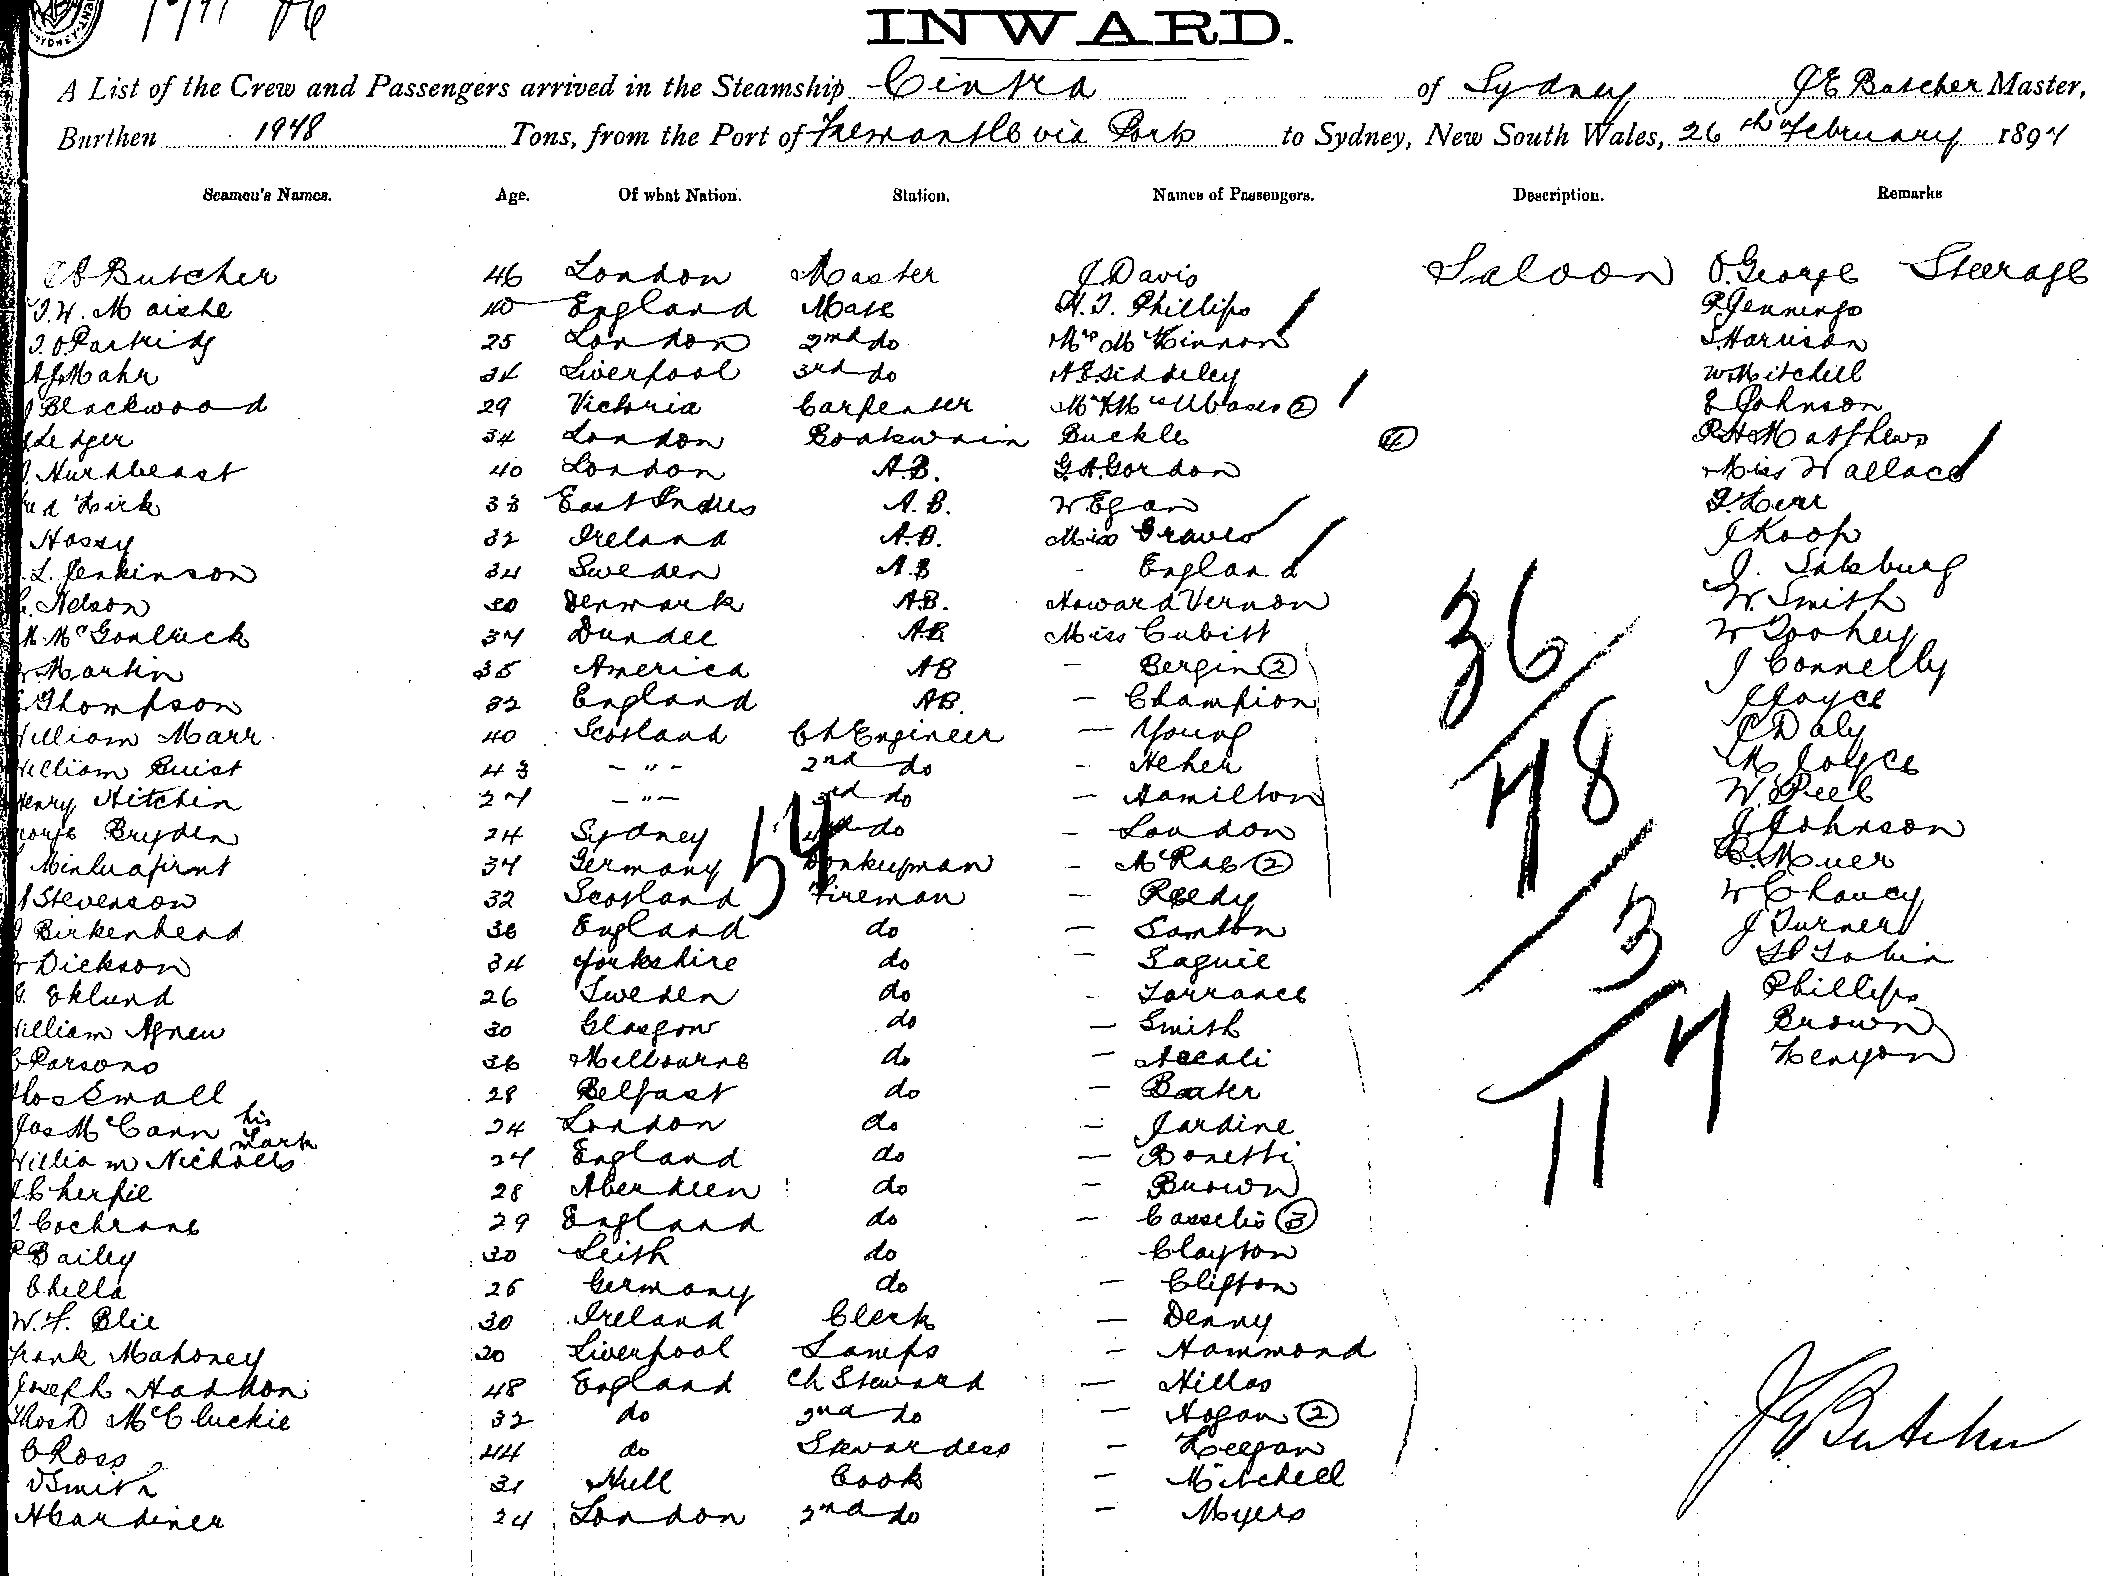 INWARD.
A List of the Crew and Passengers arrived in the Steamship Cintra of Sydney J E Butcher Master,
Burthen 1948 Tons, from the Port of Fremantle via Ports to Sydney, New South Wales, 26th February 1897
Seamen's Names. Age. Of what Nation. Station. Names of Passengers. Description. Remarks
Butcher 46 London Master J Davis Saloon O. George Steerage
40 England Mate H. T. Phillips P Jennings
25 London 2nd do Mrs McKinnon S Harrison
Mahr 34 Liverpool 3rd do A E Siddeley W Mitchell
J Blackwood 29 Victoria Carpenter ② E Johnson
Ledger 34 London Boatswain Buckle ④ R H Matthews
40 London A.B. G. A. Gordon Miss Wallace
Kirk 33 East Indies A.B. W Egan J. Kerr
Hossy 32 Ireland A.B. Miss Graves J Koop
L. Jenkinson 34 Sweden A.B - England J. Salsburg
Nelson 30 Denmark A.B. Howard Vernon W. Smith
M. 37 Dundee AB Miss Cubitt W Toohey
W Martin 35 America AB - Bergin ② J Connelly
Thompson 32 England AB. - Champion J Joyce
William Marr 40 Scotland Ch Engineer - Young J Daly
William Buist 43 - " - 2nd do - Heher M Joyce
Henry Hitchin 27 - " - 3rd do - Hamilton W. Peel
George Bryden 24 Sydney 4th do - London J Johnson
34 Germany Donkeyman - McRae ② Muer
Stevenson 32 Scotland Fireman - Reedy W Chancy
J Birkenhead 36 England do - Santon J Turner
W Dickson 34 Yorkshire do - Laguie Tobin
G. Eklund 26 Sweden do - Torrance Phillips
William Agnew 30 Glasgow do - Smith Brown
C Parsons 36 Melbourne do - Kenyon
Thos Small 28 Belfast do - Baker
Jas McCann his mark 24 London do - Jardine
William Nicholls 27 England do - Bonetti
J Cherfie 28 Aberdeen do - Brown
J. Cochrane 29 England do - Casselis ③
P Bailey 30 Leith do Clayton
Chella 26 Germany do - Clifton
W. F. Blie 30 Ireland Clerk - Denny
Frank Mahoney 20 Liverpool Lamps - Hammond
Joseph Haddon 48 England Ch Steward - Hillas
Thos D McCluckie 32 do 2nd do - Hogan ②
C Ross 44 do Stewardess - Keegan
D Smith 31 Hull Cook - Mitchell
H Gardiner 24 London 2nd do - Myers
54
36
78
3
7
11
J E Butcher